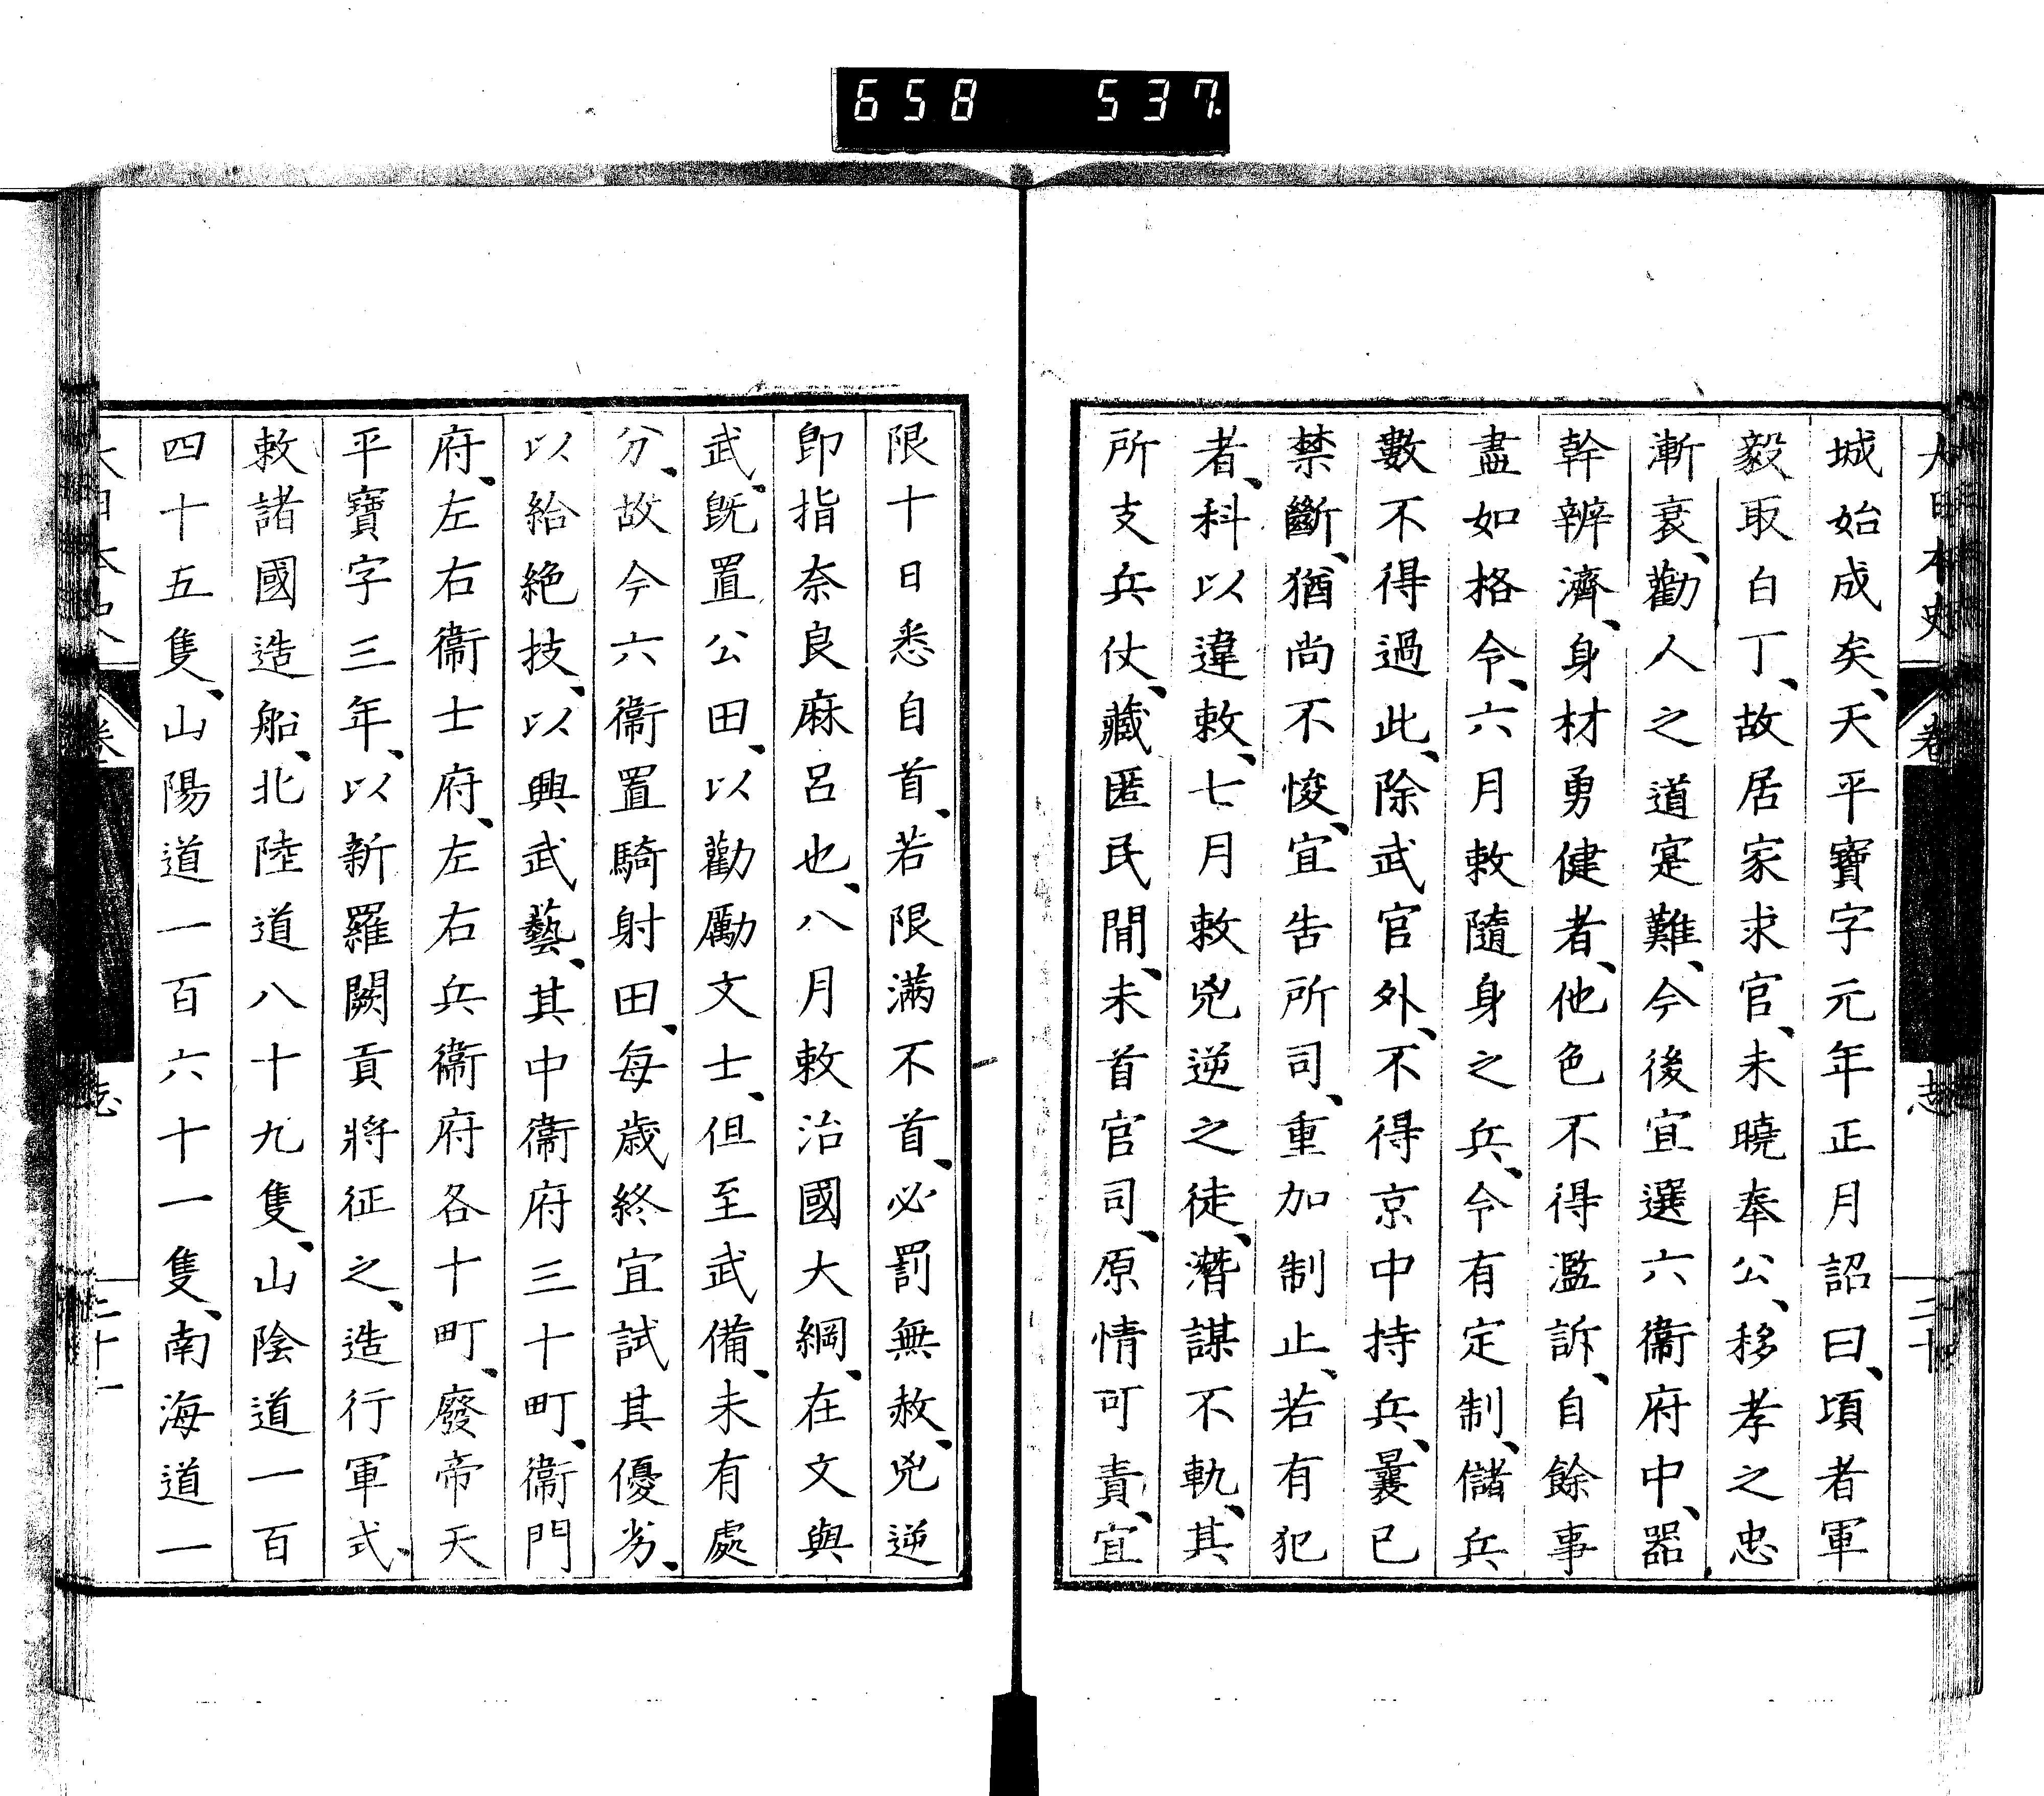 658 537
大日本史 卷 志 二十
城始成矣、天平寶字元年正月詔曰、頃者軍
毅取白丁、故居家求官、未曉奉公、移孝之忠
漸衰、勸人之道寔難、今後宜選六衞府中、器
幹辨濟、身材勇健者、他色不得濫訴、自餘事
盡如格令、六月敕隨身之兵、令有定制、儲兵
數不得過此、除武官外、不得京中持兵、曩已
禁斷、猶尚不悛、宜告所司、重加制止、若有犯
者、科以違敕、七月敕兇逆之徒、潛謀不軌、其
所支兵仗、藏匿民閒、未首官司、原情可責、宜
限十日悉自首、若限滿不首、必罰無赦、兇逆
卽指奈良麻呂也、八月敕治國大綱、在文與
武、旣置公田、以勸勵文士、但至武備、未有處
分、故今六衞置騎射田、每歲終宜試其優劣、
以給絶技、以興武藝、其中衞府三十町、衞門
府、左右衞士府、左右兵衞府各十町、廢帝天
平寶字三年、以新羅闕貢將征之、造行軍式、
敕諸國造船、北陸道八十九隻、山陰道一百
四十五隻、山陽道一百六十一隻、南海道一
大日本史 卷 志 二十一